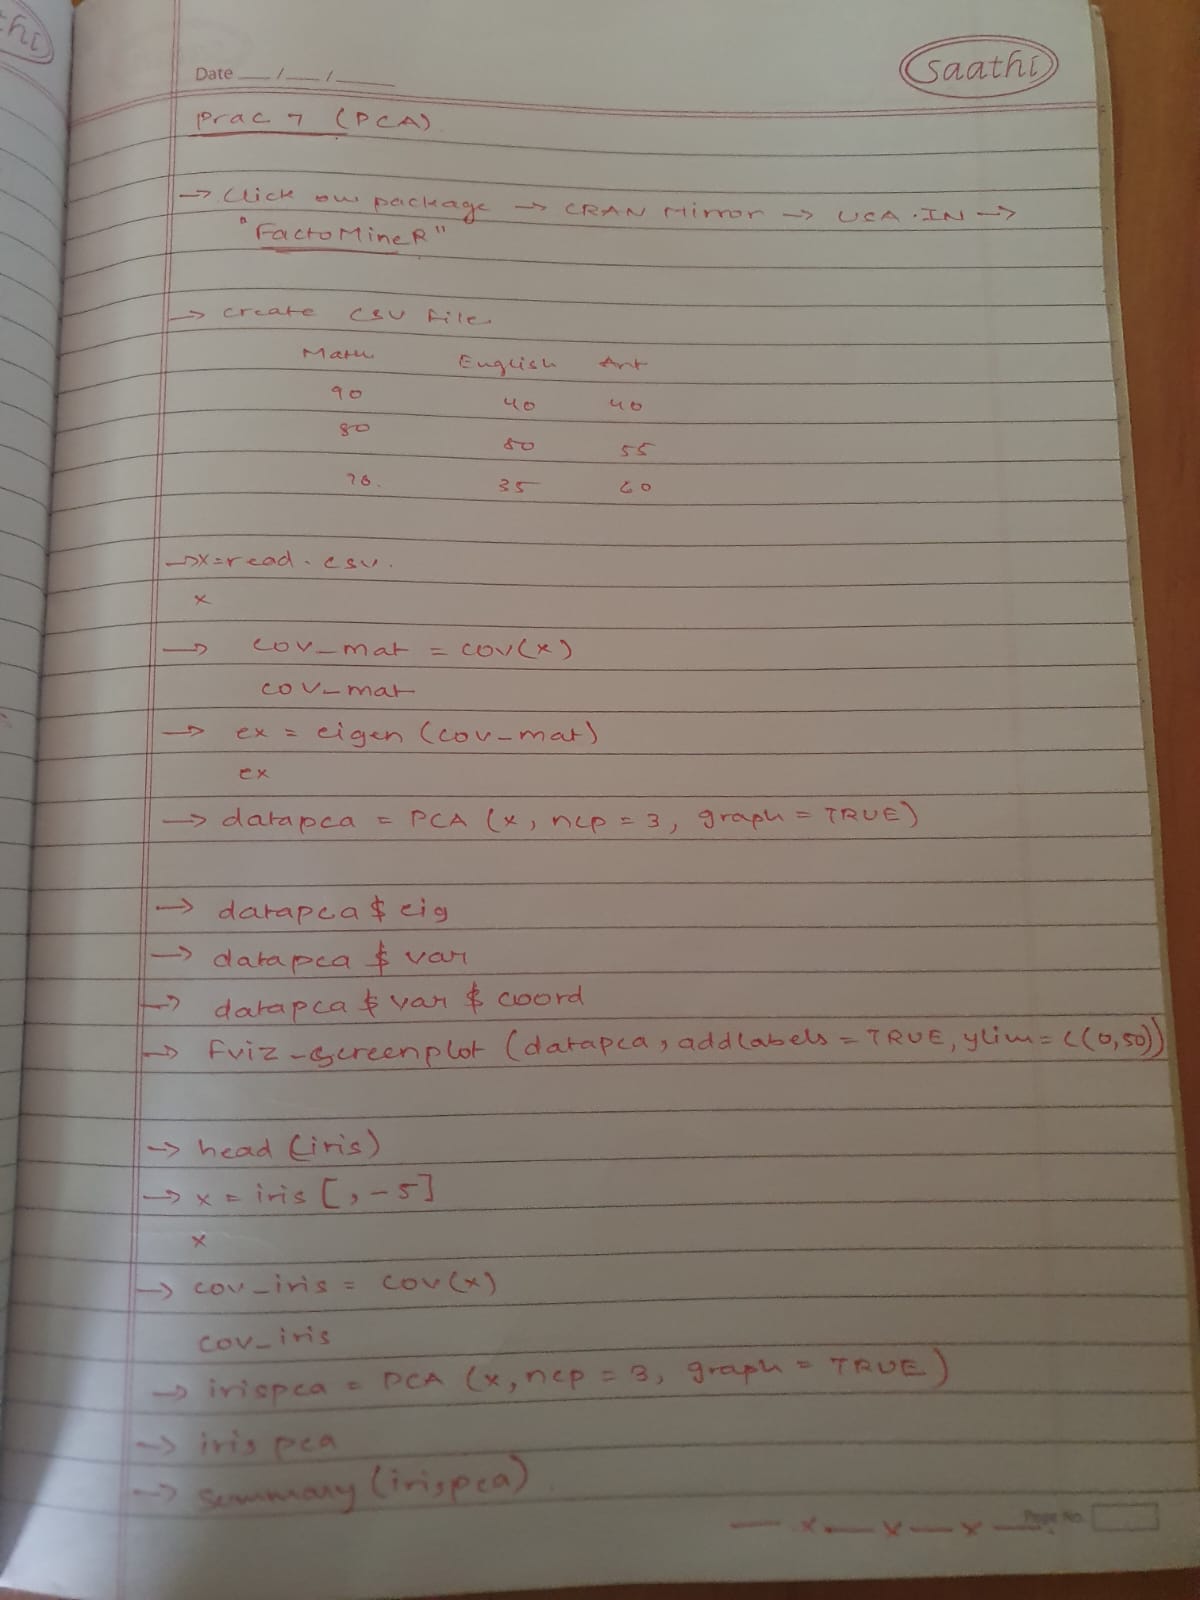 thi
Date __/__/____
saathi
Prac 7 (PCA)
→ Click on package → CRAN Mirror → UCA.IN →
"FactoMineR"
→ create csv file
Math English Art
90 40 40
80 50 55
70. 35 60
→ x=read.csv.
x
→ cov_mat = cov(x)
cov_mat
→ ex = eigen (cov_mat)
ex
→ datapca = PCA (x, ncp = 3, graph = TRUE)
→ datapca $ eig
→ datapca $ var
→ datapca $ var $ coord
→ fviz_screenplot (datapca, addlabels = TRUE, ylim = c(0,50))
→ head (iris)
→ x = iris [, -5]
x
→ cov_iris = cov(x)
cov_iris
→ irispca = PCA (x, ncp = 3, graph = TRUE)
→ irispca
→ summary (irispca)
— x — x — x —
Page No.